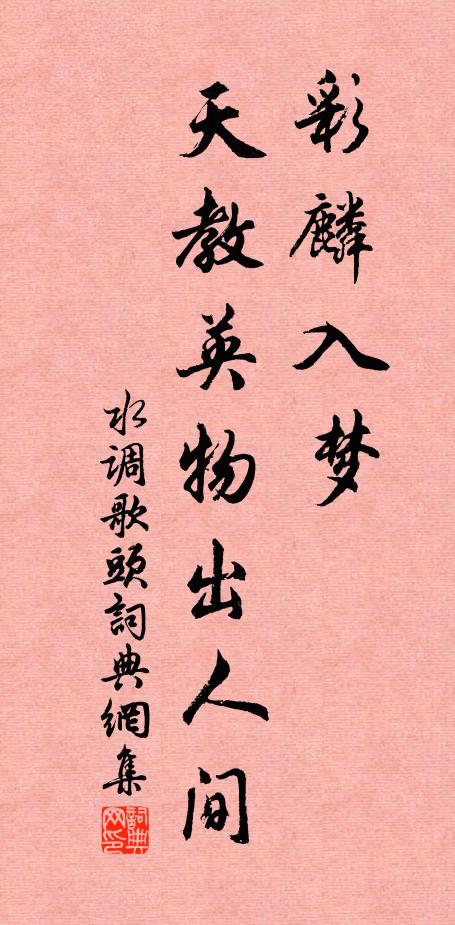 彩麟入梦
天教英物出人间
水调歌頭詞典網集
詞典网印